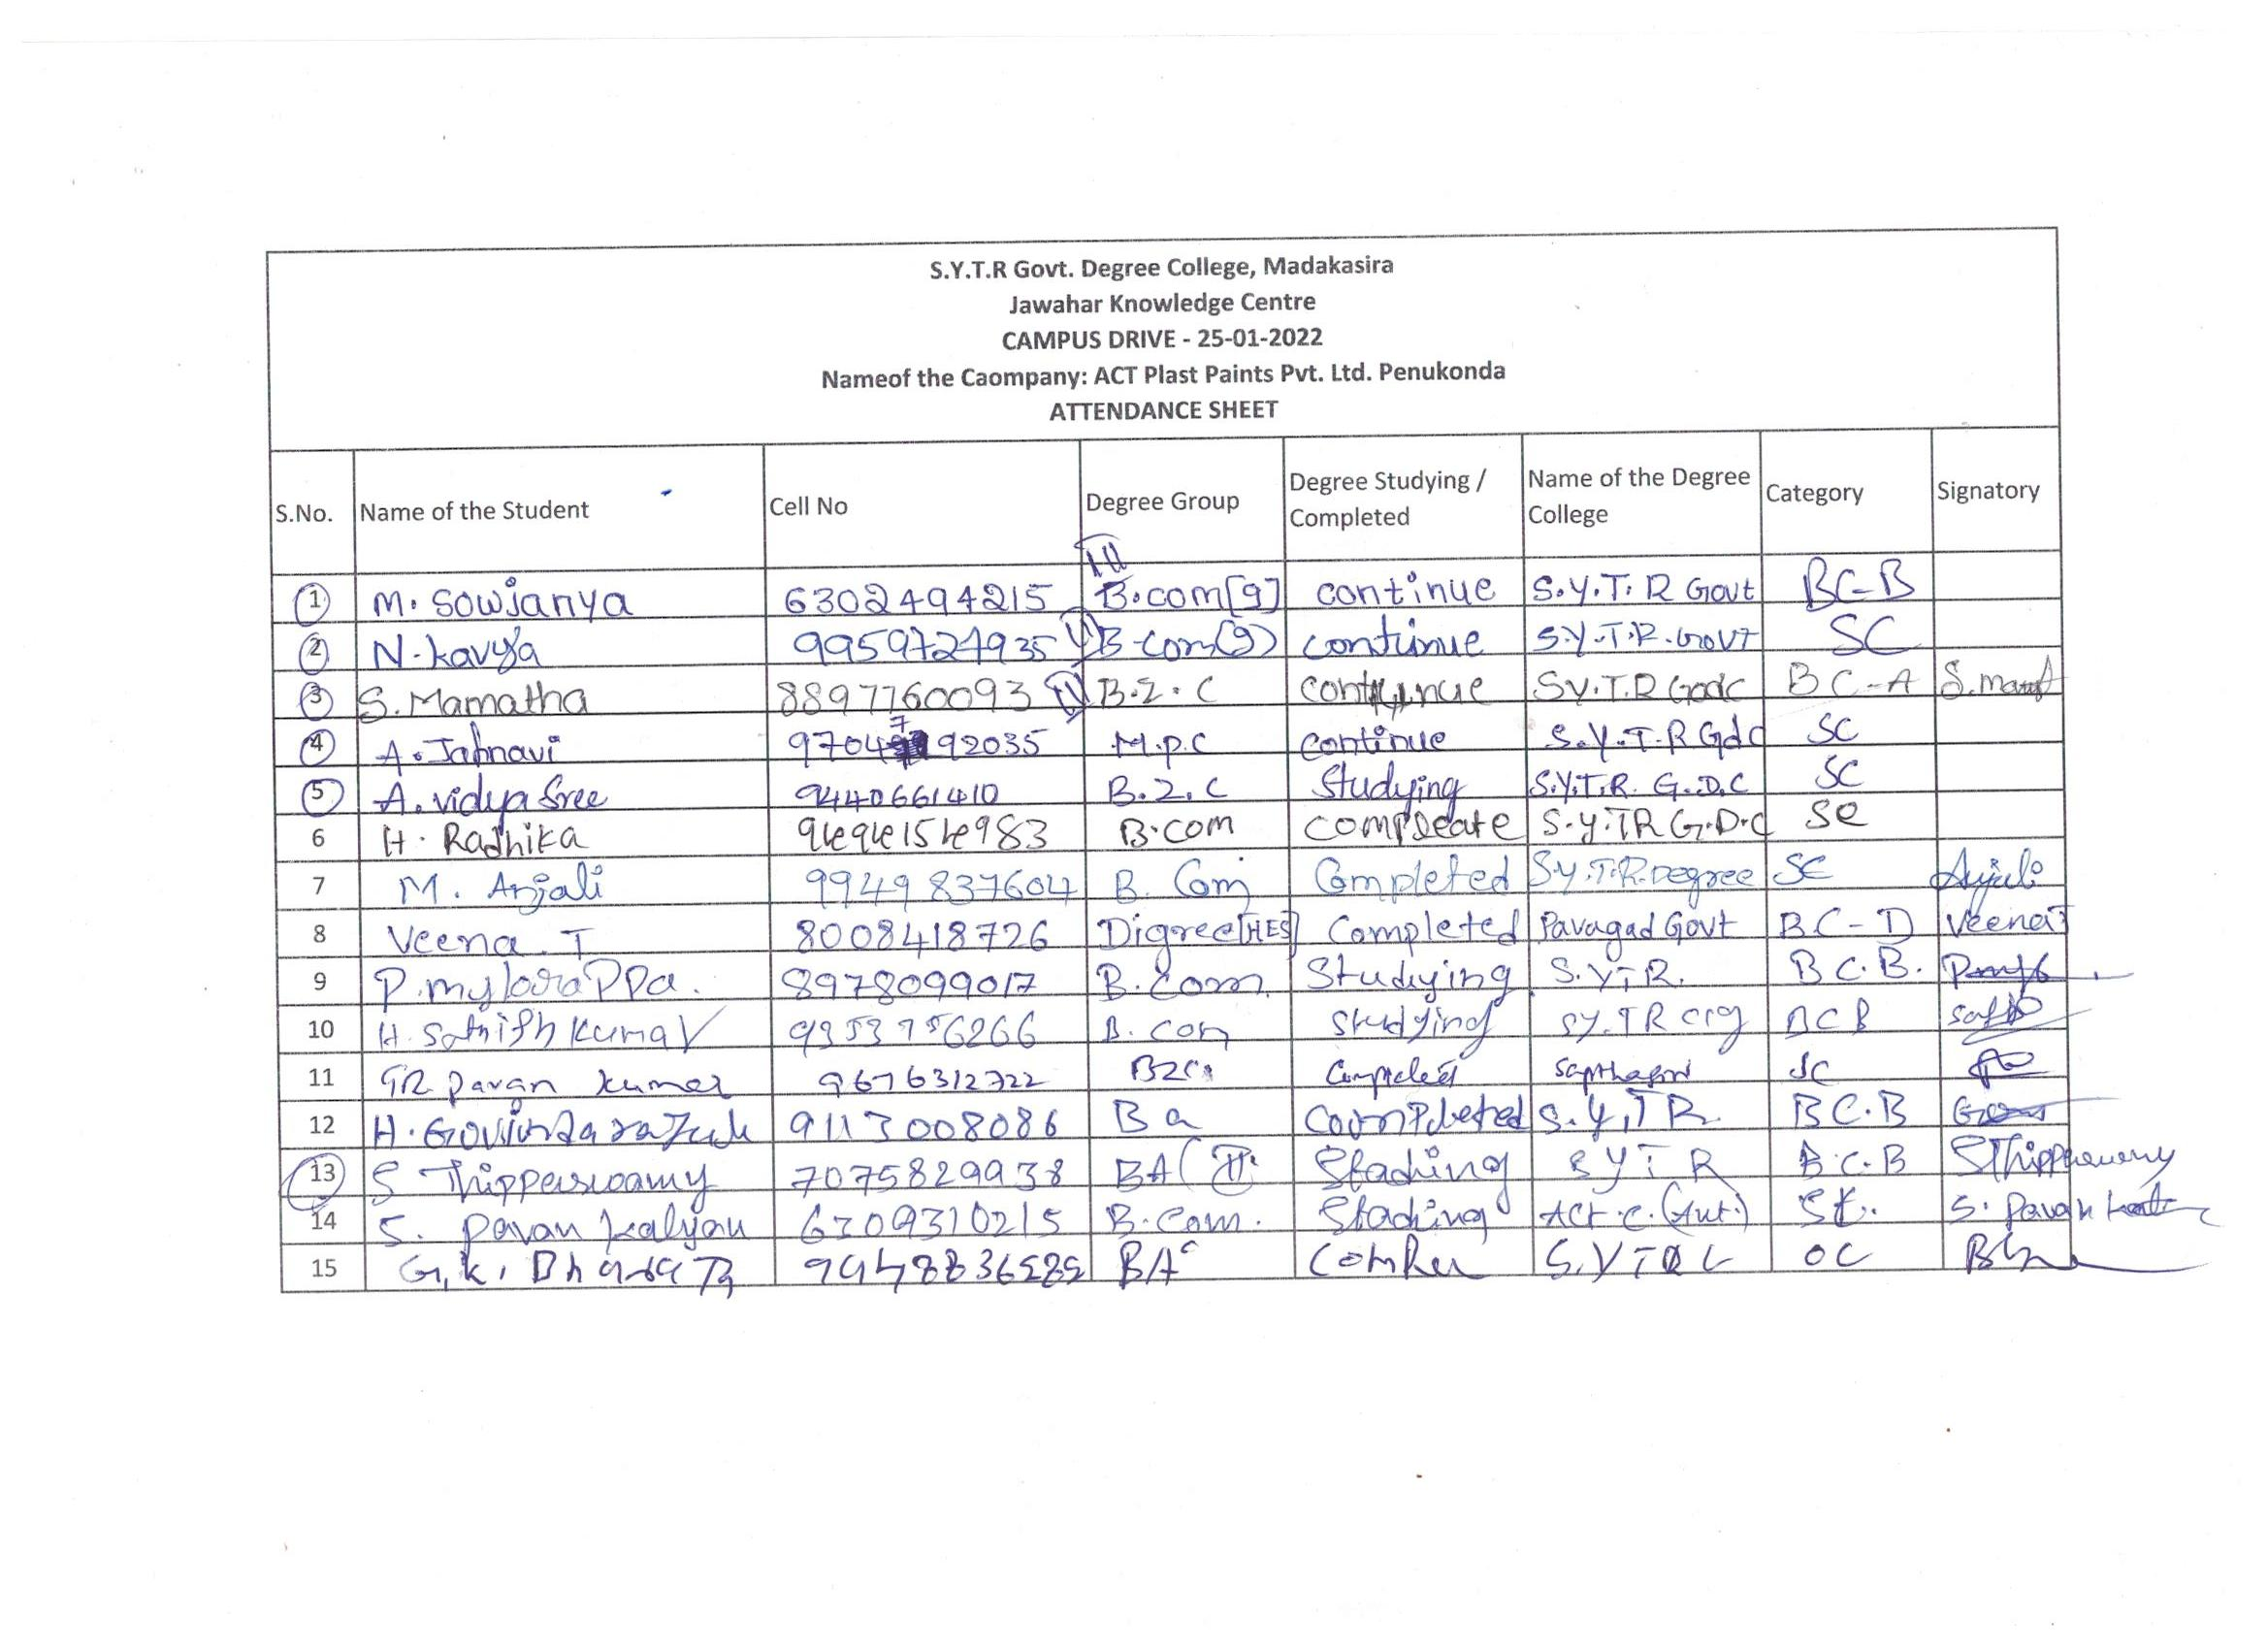 S.Y.T.R Govt. Degree College, Madakasira
Jawahar Knowledge Centre
CAMPUS DRIVE - 25-01-2022
Nameof the Caompany: ACT Plast Paints Pvt. Ltd. Penukonda
ATTENDANCE SHEET
S.No. Name of the Student Cell No Degree Group Degree Studying / Completed Name of the Degree College Category Signatory
1 M. Sowjanya 6302494215 III B.com[g] continue S.Y.T.R Govt BC-B
2 N. kavya 9959727935 B-com(g) continue S.Y.T.R. Govt SC
3 S. Mamatha 8897760093 B.Z.C continue SY.T.R Gdc BC-A S.mamt
4 A. Jahnavi 9704792035 M.p.c continue S.Y.T.R Gdc SC
5 A. vidya Sree 9440661410 B.Z.C Studying S.Y.T.R. G.D.C SC
6 H. Radhika 9494154983 B.com compleate S.y.TR G.D.C SC
7 M. Anjali 9949837604 B. Com Completed S.Y.T.R. Degree SC Anjali
8 Veena. T 8008418726 Digree[HES] Completed Pavagad Govt BC-D Veena T
9 P. mylarappa. 8978099017 B.Com Studying S.YTR. BC.B.
10 H. Sathish Kumar 9353756266 B. Com Studying SY.TR BCB
11 TR Pavan kumar 9676312722 BZC. Completed Sapthagiri SC
12 H. Govindarazulu 9113008086 Ba Coompleted S.Y.TR. BC.B
13 S Thipperswamy 7075829938 BA (III Stading SYTR B.C.B SThipperswamy
14 S. Pavan kalyan 6309310215 B.Com. Stading St. S. Pavan
15 G.K. Bharath BA OC